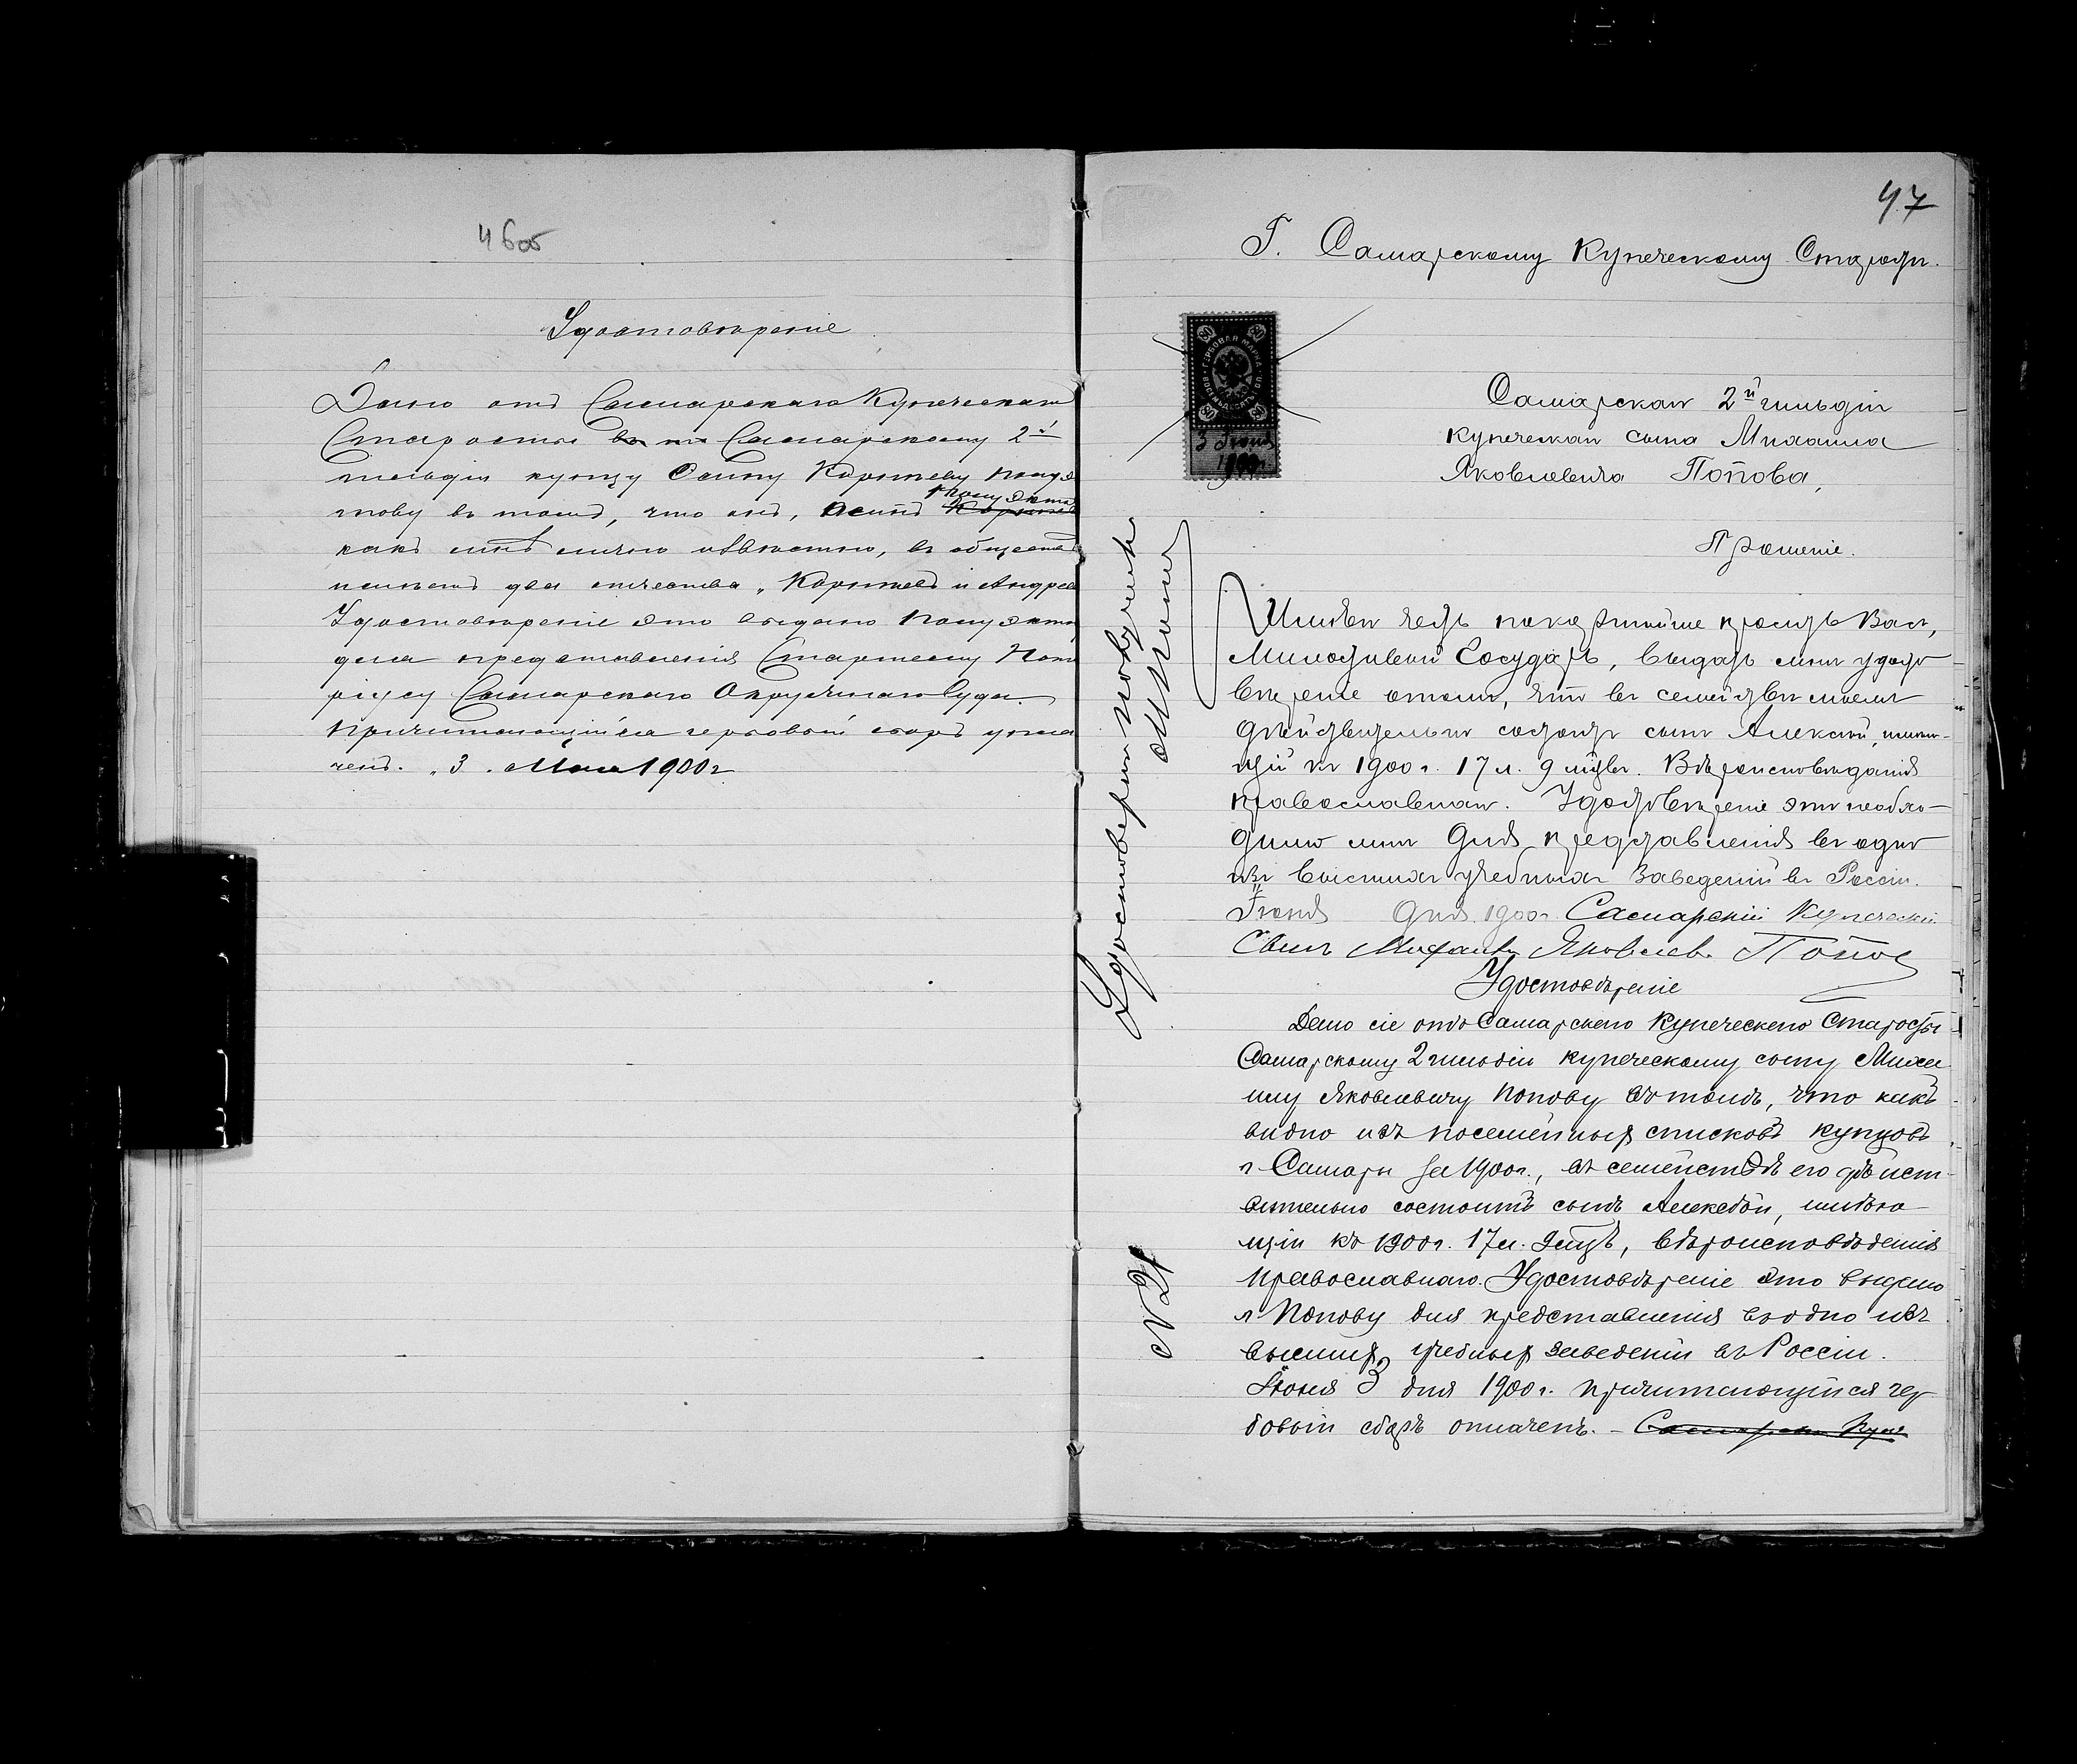 46об
Удостовѣреніе
Дано отъ Самарскаго Купеческаго
Старосты Самарскому 2й
гильдіи купцу Осипу Корнѣеву Полуэ
ктову въ томъ, что онъ, Осипъ Полуэктовъ
какъ мнѣ лично извѣстно, въ обществѣ
носитъ два отчества „Корнѣевъ и Андрее
Удостовѣреніе это выдано Полуэкто
для представленія Старшему Нота
ріусу Самарскаго Окружнаго Суда.
Причитающійся гербовый сборъ упла
ченъ. „3„ Мая 1900 г
47
Г. Самарскому Купеческому Старостѣ.
ГЕРБОВАЯ МАРКА
80
3 Іюня
1900 г.
Самарскаго 2й гильдіи
купеческаго сына Михаила
Яковлевича Попова,
Прошеніе.
Имѣю честь покорнѣйше просить Васъ,
Милостивый Государь, выдать мнѣ удосто
вѣреніе о томъ, что въ семействѣ моемъ
дѣйствительно состоитъ сынъ Алексѣй, имѣю-
щій къ 1900 г. 17 л. 9 мѣс. Вѣроисповѣданія
православнаго. Удостовѣреніе это необхо-
димо мнѣ для представленія въ одно
изъ высшихъ учебныхъ заведеній въ Россіи.
Іюня дня 1900 г. Самарскій Купеческій
Сынъ Михаилъ Яковлев. Попов
Удостовѣреніе
Дано сіе отъ Самарскаго Купеческаго Старосты
Самарскому 2 гильдіи купеческому сыну Михаи
лу Яковлевичу Попову въ томъ, что какъ
видно изъ посемейныхъ списковъ купцовъ
г. Самары за 1900 г., въ семействѣ его дѣйст-
вительно состоитъ сынъ Алексѣй, имѣю
щій къ 1900 г. 17 л. 9 мѣс., вѣроисповѣденія
Православнаго. Удостовѣреніе это выдано
г. Попову для представленія въ одно изъ
высшихъ учебныхъ заведеній въ Россіи.
Іюня 3 дня 1900 г. Причитающійся гер
бовый сборъ оплаченъ. – Самарскій Купе
Удостоверение получилъ
М Поповъ
№ 24